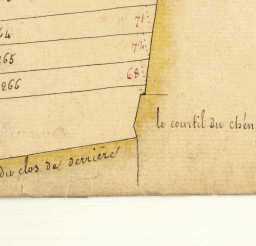 71
64
265
266
68
le courtil du chên
du clos de derrière